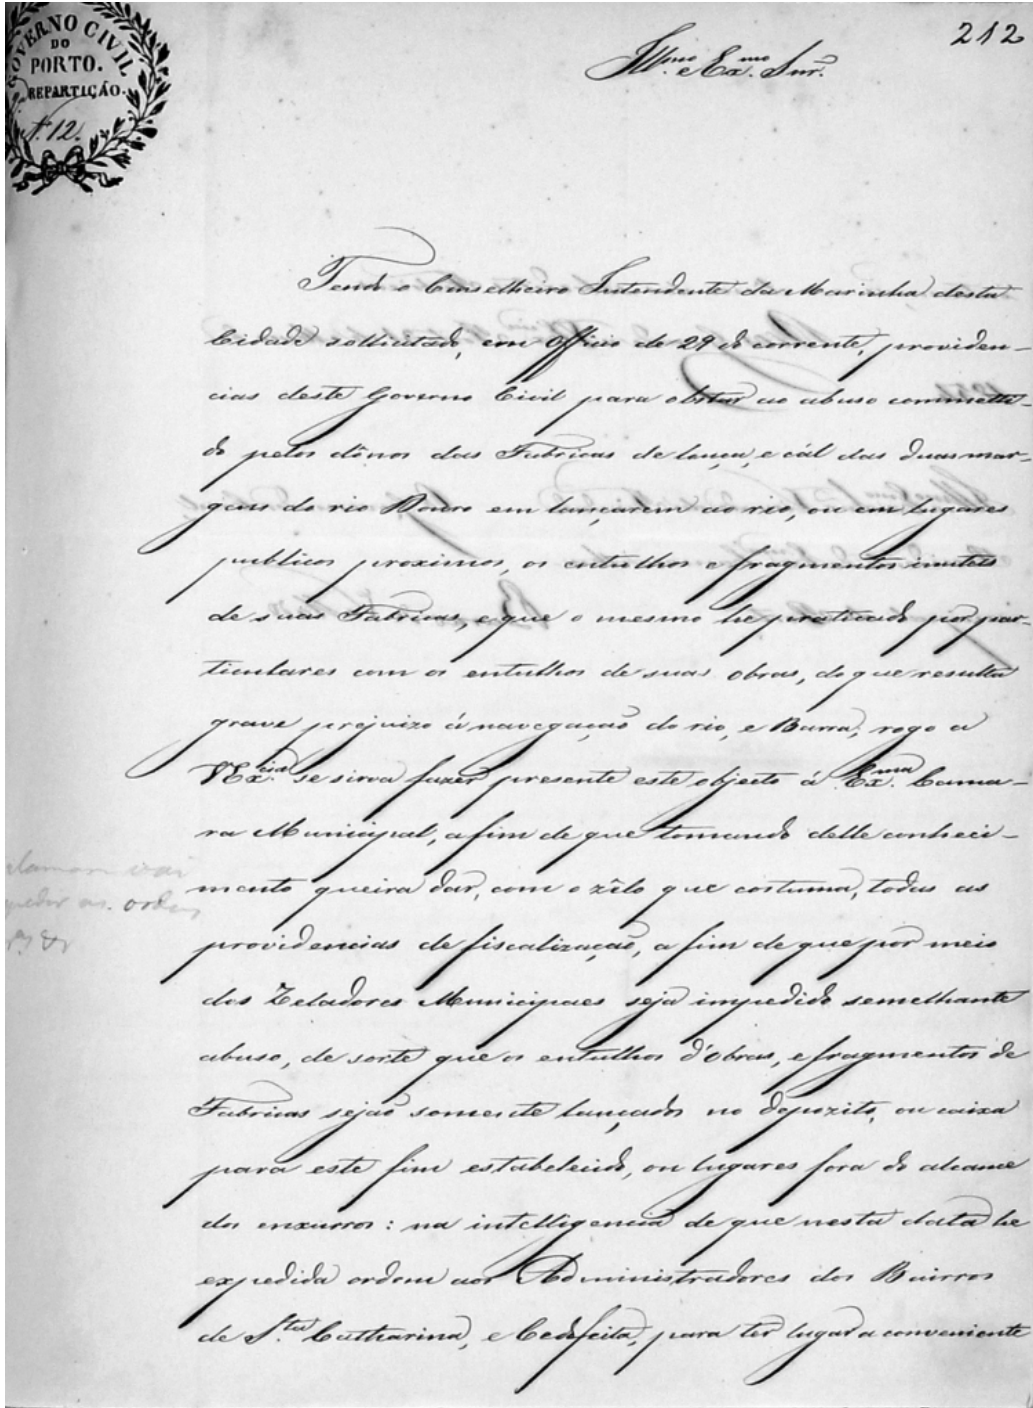 GOVERNO CIVIL
DO
PORTO.
REPARTIÇÃO.
N.12.
212
Ill.mo e Ex.mo Snr.
Tendo o Conselheiro Intendente da Marinha desta
Cidade sollicitado, em Officio de 29 do corrente, providen-
cias deste Governo Civil para obstar ao abuso commetti-
do pelos dônos das Fabricas de louça, e cál das duas mar-
gens do rio Douro em lançarem ao rio, ou em lugares
publicos proximos, os entulhos e fragmentos inuteis
de suas Fabricas, e que o mesmo he praticado por par-
ticulares com os entulhos de suas obras, do que resulta
grave prejuizo á navegação do rio, e Barra; rogo a
V. Ex.cia se sirva fazer presente este objecto á Ex.ma Cama-
ra Municipal, a fim de que tomando delle conheci-
mento queira dar, com o zêlo que costuma, todas as
providencias de fiscalização, a fim de que por meio
dos Zeladores Municipaes seja impedido semelhante
abuso, de sorte que os entulhos d'obras, e fragmentos de
Fabricas sejão somente lançados no depozito, ou caixa
para este fim estabelecido, ou lugares fora do alcance
dos enxurros: na intelligencia de que nesta data he
expedida ordem aos Administradores dos Bairros
de S.ta Catharina, e Cedofeita, para ter lugar a conveniente